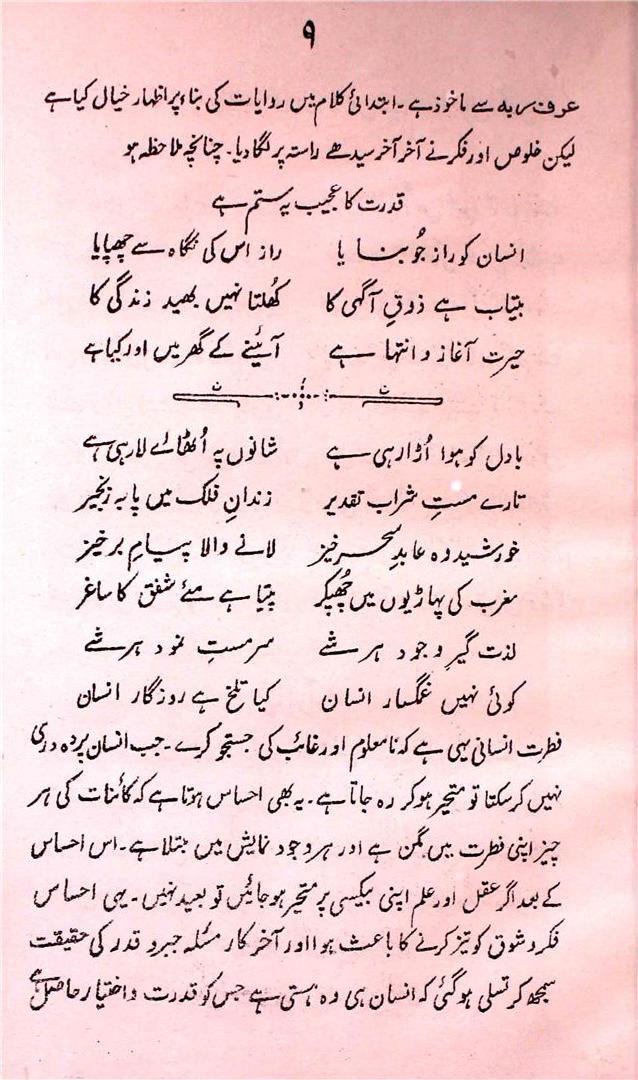 ۹
عرف ربہ سے ماخوذ ہے۔ ابتدائی کلام میں روایات کی بناء پر اظہار خیال کیا ہے
لیکن خلوص اور فکر نے آخر آخر سیدھے راستہ پر لگا دیا۔ چنانچہ ملاحظہ ہو
قدرت کا عجیب یہ ستم ہے
انسان کو راز جُو بنایا راز اس کی نگاہ سے چھپایا
بیتاب ہے ذوقِ آگہی کا کھُلتا نہیں بھید زندگی کا
حیرتِ آغاز و انتہا ہے آئینے کے گھر میں اور کیا ہے
بادل کو ہوا اُڑا رہی ہے شانوں پہ اُٹھائے لا رہی ہے
تارے مستِ شراب تقدیر زندانِ فلک میں پا بہ زنجیر
خورشید وہ عابدِ سحر خیز لانے والا پیامِ برخیز
مغرب کی پہاڑیوں میں چُھپکر پیتا ہے مئے شفق کا ساغر
لذت گیرِ وجود ہر شے سرمستِ نمود ہر شے
کوئی نہیں غمگسار انسان کیا تلخ ہے روزگار انسان
فطرت انسانی یہی ہے کہ نامعلوم اور غائب کی جستجو کرے۔ جب انسان پردہ دری
نہیں کر سکتا تو متحیر ہو کر رہ جاتا ہے۔ یہ بھی احساس ہوتا ہے کہ کائنات کی ہر
چیز اپنی فطرت میں مگن ہے اور ہر وجود نمایش میں مبتلا ہے۔ اس احساس
کے بعد اگر عقل اور علم اپنی بیکسی پر متحیر ہو جائیں تو بعید نہیں۔ یہی احساس
فکر و شوق کو تیز کرنے کا باعث ہوا اور آخر کار مسئلہ جبر و قدر کی حقیقت
سمجھ کر تسلی ہو گئی کہ انسان ہی وہ ہستی ہے جس کو قدرت و اختیار حاصل ہے